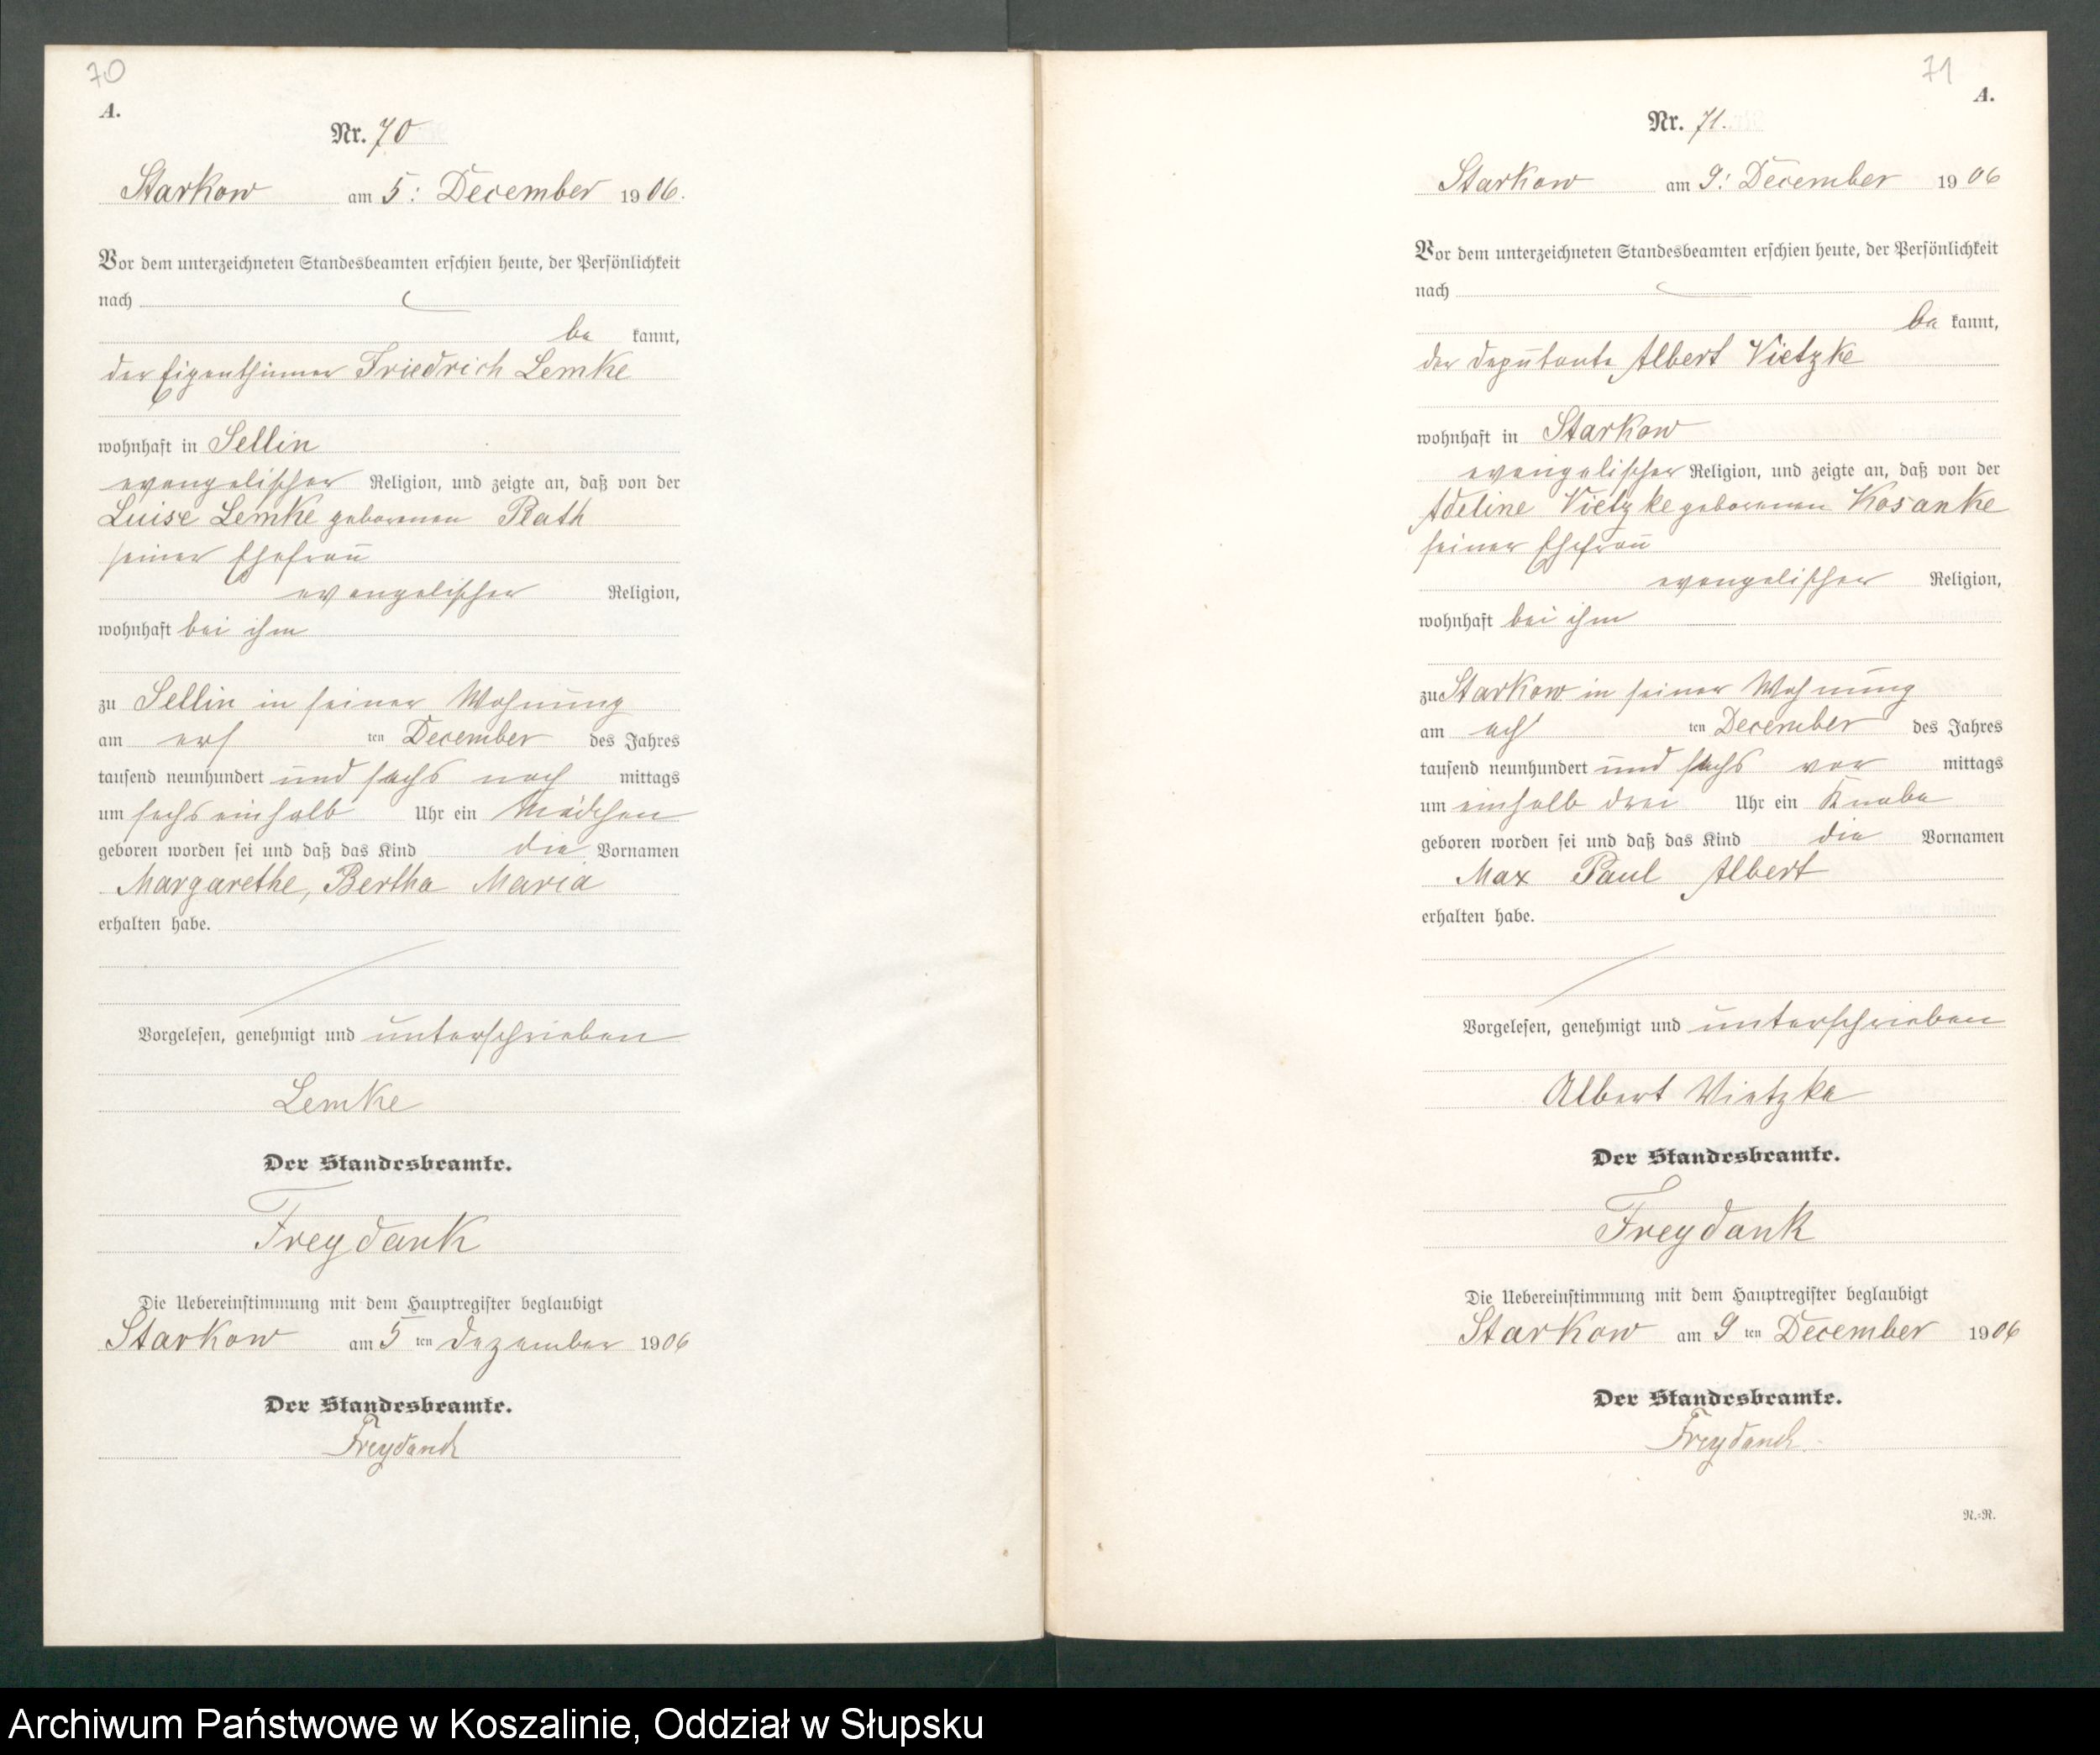 70
A.
Nr. 70
Starkow am 5: December 1906.
Vor dem unterzeichneten Standesbeamten erschien heute, der Persönlichkeit
nach
be kannt,
der Eigenthümer Friedrich Lemke
wohnhaft in Sellin
evangelischer Religion, und zeigte an, daß von der
Luise Lemke geborenen Rath
seiner Ehefrau
evangelischer Religion,
wohnhaft bei ihm
zu Sellin in seiner Wohnung
am ers ten December des Jahres
tausend neunhundert und sechs nach mittags
um sechs einhalb Uhr ein Mädchen
geboren worden sei und daß das Kind die Vornamen
Margarethe, Bertha Maria
erhalten habe.
Vorgelesen, genehmigt und unterschrieben
Lemke
Der Standesbeamte.
Freydank
Die Uebereinstimmung mit dem Hauptregister beglaubigt
Starkow am 5 ten Dezember 1906
Der Standesbeamte.
Freydanck
71
A.
Nr. 71.
Starkow am 9: December 1906
Vor dem unterzeichneten Standesbeamten erschien heute, der Persönlichkeit
nach
be kannt,
der Deputante Albert Vietzke
wohnhaft in Starkow
evangelischer Religion, und zeigte an, daß von der
Adeline Vietzke geborenen Kosanke
seiner Ehefrau
evangelischer Religion,
wohnhaft bei ihm
zu Starkow in seiner Wohnung
am ach ten December des Jahres
tausend neunhundert und sechs vor mittags
um einhalb drei Uhr ein Knabe
geboren worden sei und daß das Kind die Vornamen
Max Paul Albert
erhalten habe.
Vorgelesen, genehmigt und unterschrieben
Albert Vietzke
Der Standesbeamte.
Freydank
Die Uebereinstimmung mit dem Hauptregister beglaubigt
Starkow am 9 ten December 1906
Der Standesbeamte.
Freydanck.
N.=R.
Archiwum Państwowe w Koszalinie, Oddział w Słupsku